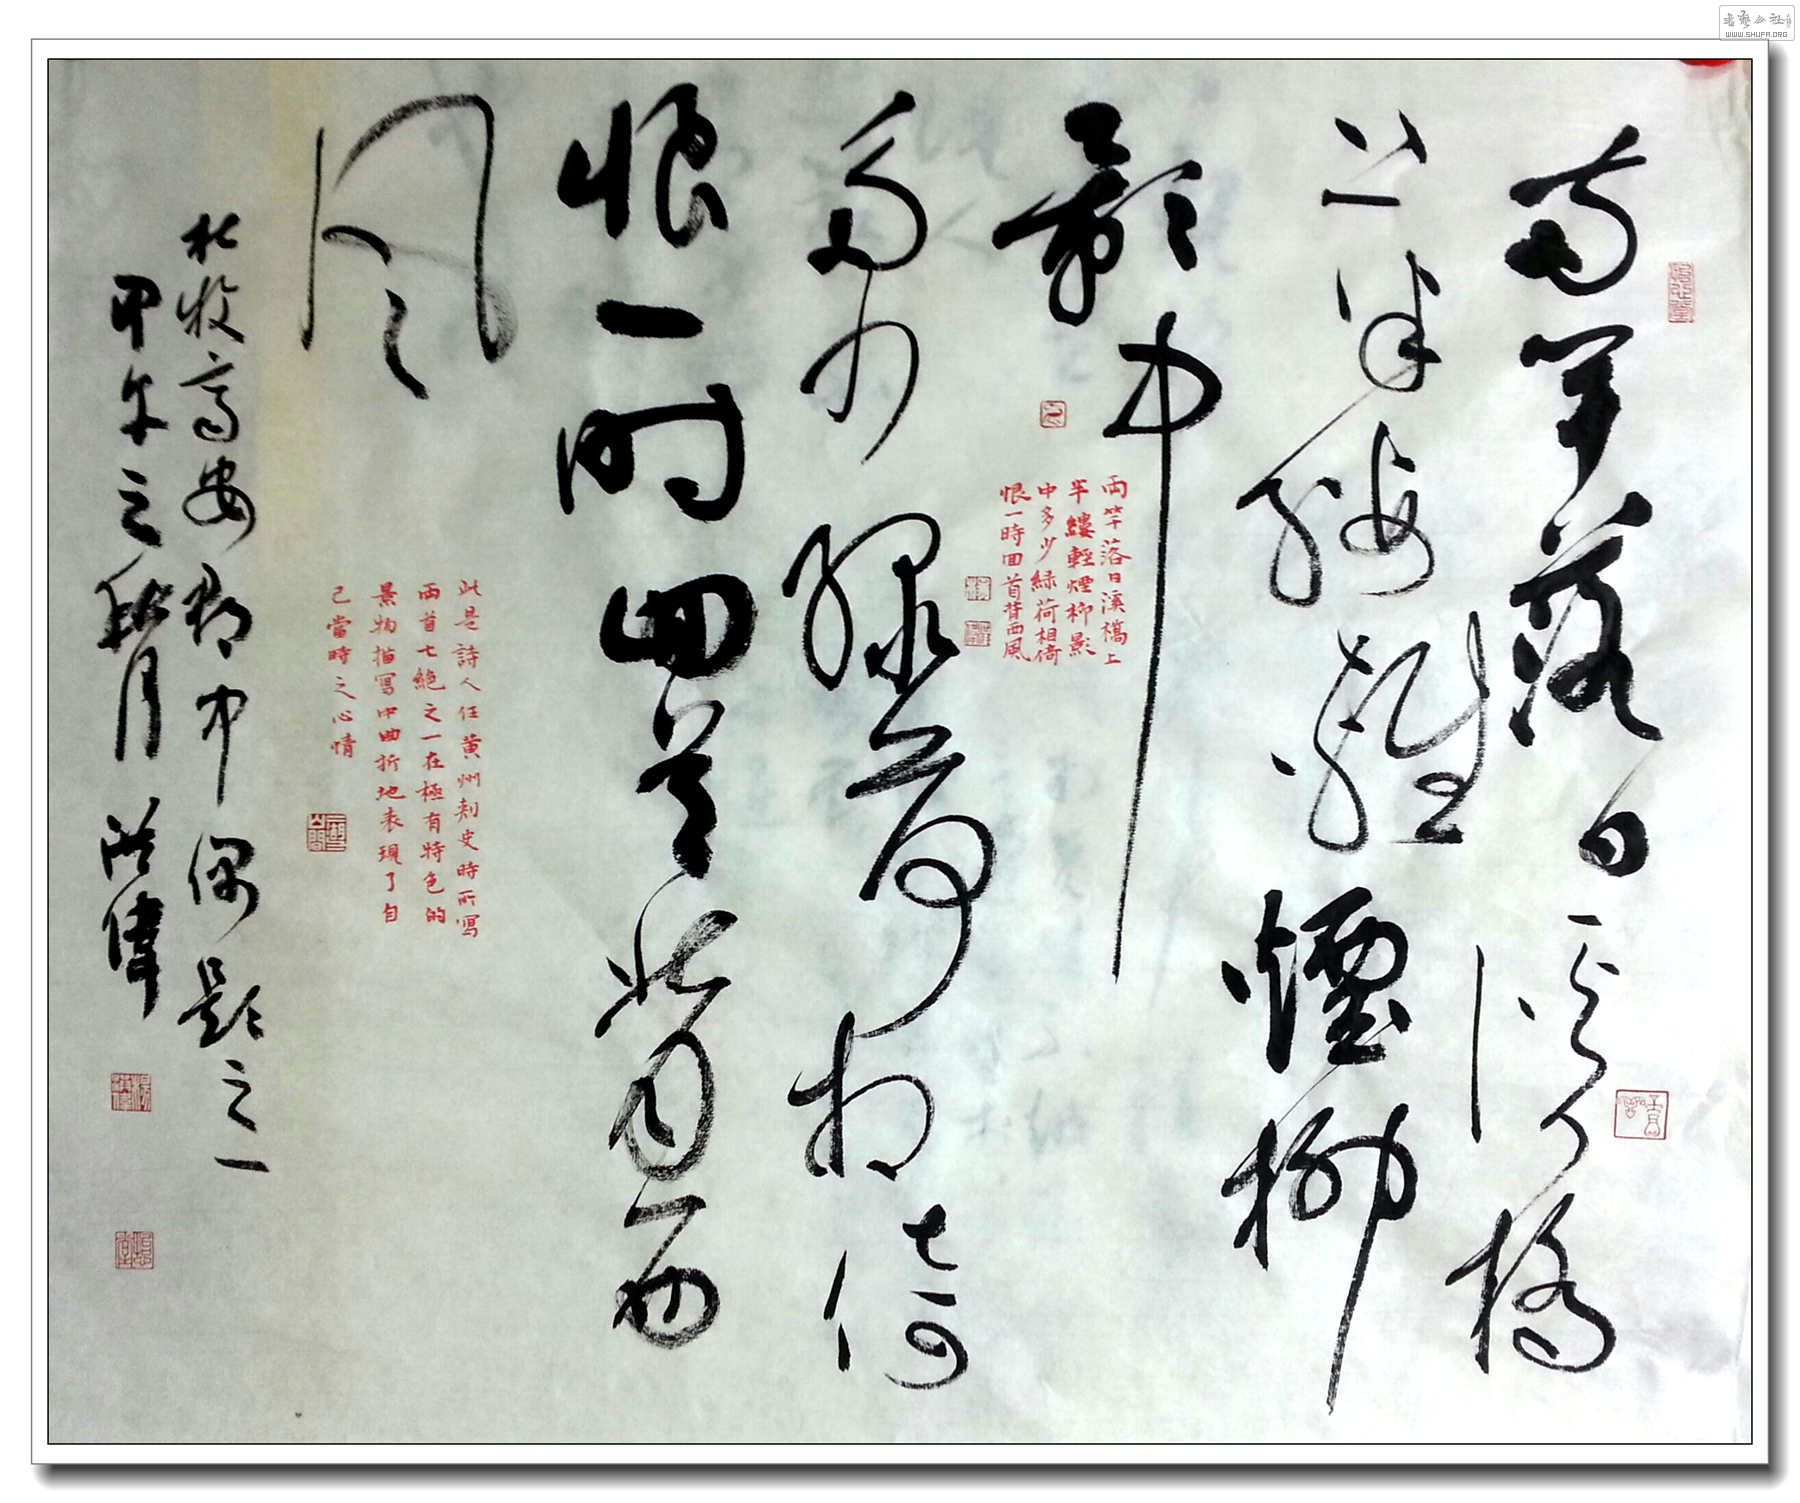 兩竿落日溪橋
上半縷輕煙柳
影中
兩竿落日溪橋上
半縷輕煙柳影
中多少緑荷相倚
恨一時回首背西風
多少緑荷相倚
恨一時回首背西
风
此是詩人任黄州刺史時所寫
兩首七絶之一在極有特色的
景物描寫中曲折地表現了自
己當時之心情
杜牧齊安郡中偶題之一
甲午之秋月 洪偉
書藝公社
WWW.SHUFA.ORG